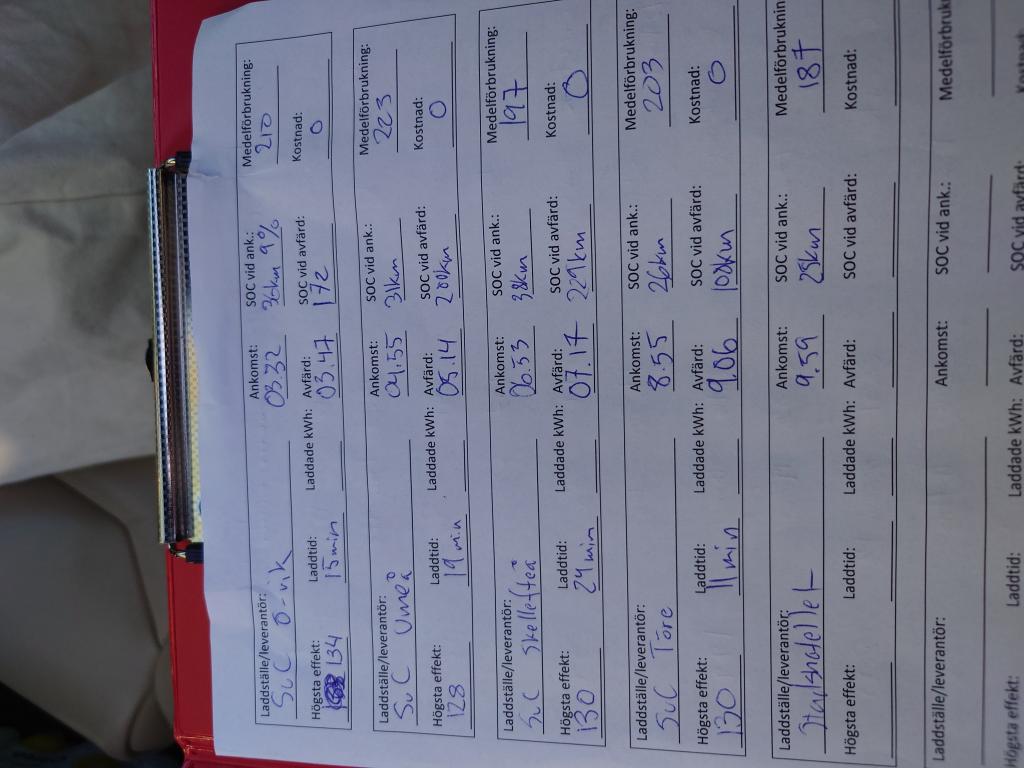 Laddställe/leverantör: Ankomst: SOC vid ank.: Medelförbrukning:
SuC Ö-vik 03.32 36km 9% 210
Högsta effekt: Laddtid: Laddade kWh: Avfärd: SOC vid avfärd: Kostnad:
134 15min 03.47 172 0
Laddställe/leverantör: Ankomst: SOC vid ank.: Medelförbrukning:
SuC Umeå 04.55 31km 223
Högsta effekt: Laddtid: Laddade kWh: Avfärd: SOC vid avfärd: Kostnad:
128 19min 05.14 200km 0
Laddställe/leverantör: Ankomst: SOC vid ank.: Medelförbrukning:
SuC Skellefteå 06.53 38km 197
Högsta effekt: Laddtid: Laddade kWh: Avfärd: SOC vid avfärd: Kostnad:
130 24min 07.17 229km 0
Laddställe/leverantör: Ankomst: SOC vid ank.: Medelförbrukning:
SuC Töre 8.55 26km 203
Högsta effekt: Laddtid: Laddade kWh: Avfärd: SOC vid avfärd: Kostnad:
130 11min 9.06 108km 0
Laddställe/leverantör: Ankomst: SOC vid ank.: Medelförbruknin
9.59 28km 187
Högsta effekt: Laddtid: Laddade kWh: Avfärd: SOC vid avfärd: Kostnad:
Laddställe/leverantör: Ankomst: SOC vid ank.: Medelförbrukn
Högsta effekt: Laddtid: Laddade kWh: Avfärd: SOC vid avfärd: Kostnad: